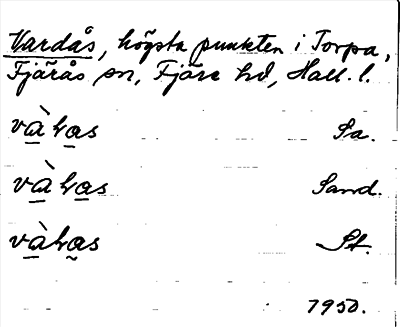 Vardås, högsta punkten i Torpa,
Fjärås sn, Fjäre hd, Hall. l.
vàhas Sa.
vàhas Sand.
vàhas St.
1950.